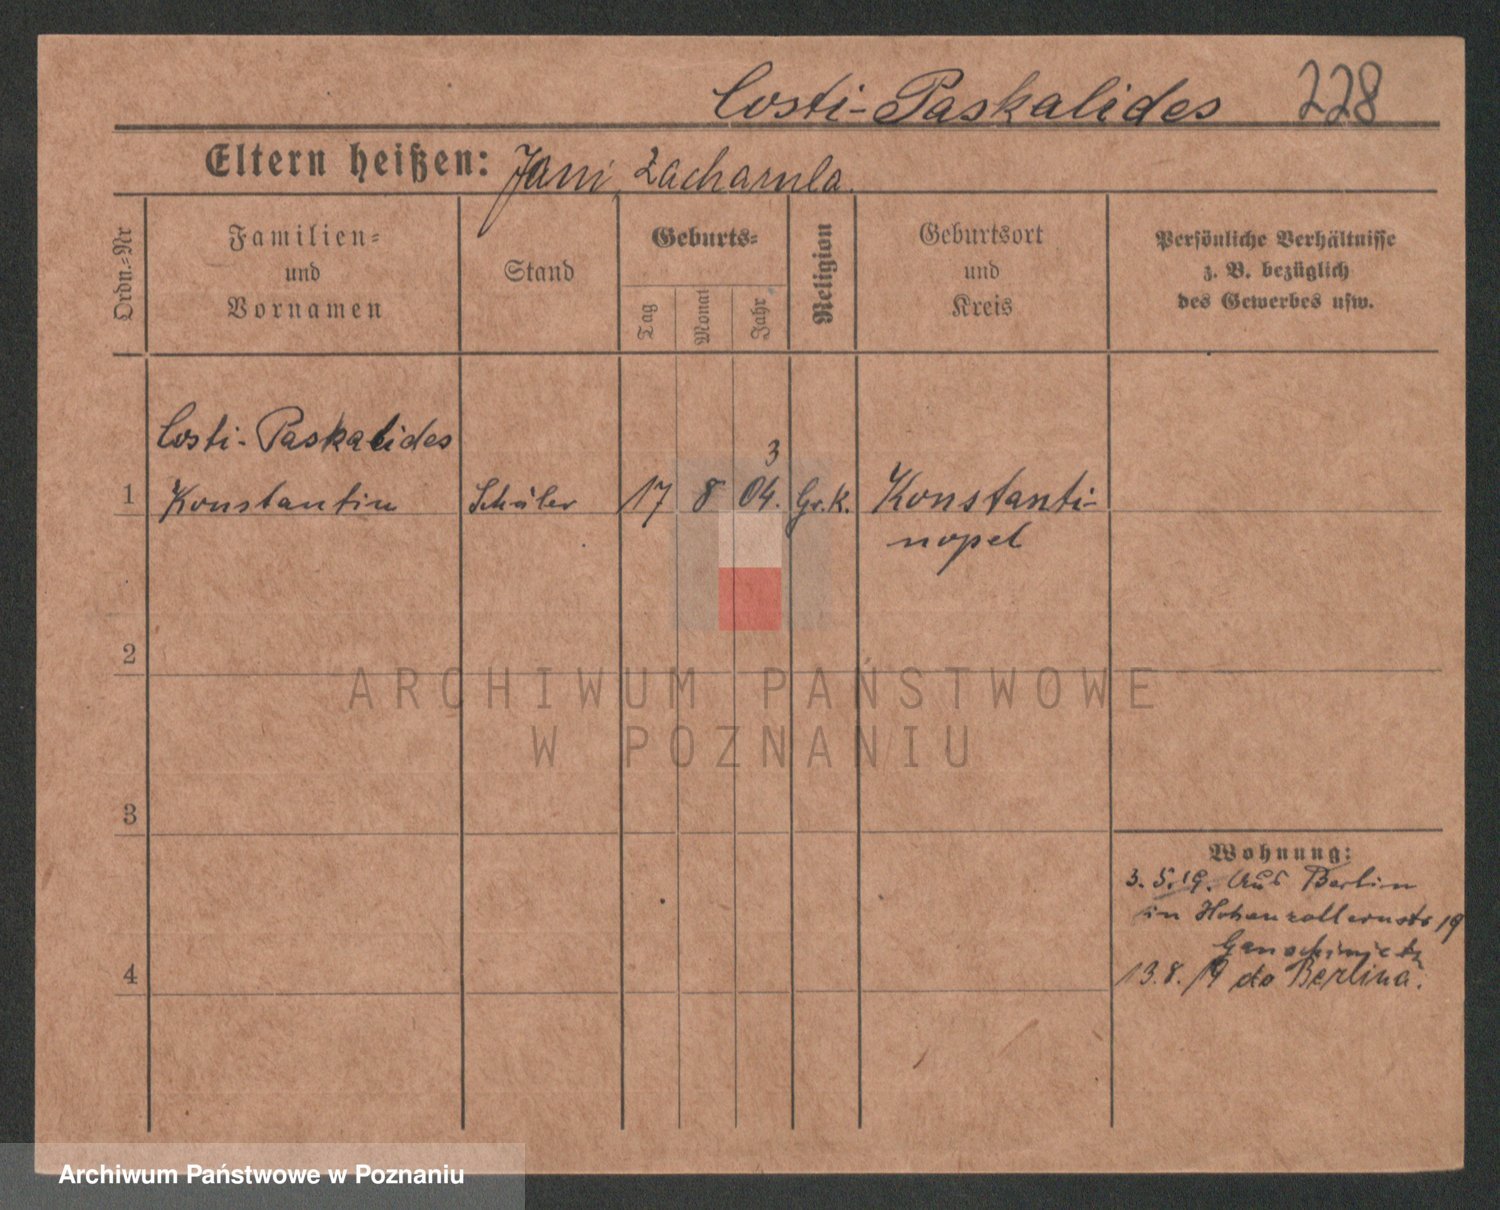 Costi-Paskalides 228
Eltern heißen: Jani, Zacharula.
Ordn.-Nr
Familien-
und
Vornamen
Stand
Geburts-
Tag
Monat
Jahr
Religion
Geburtsort
und
Kreis
Persönliche Verhältnisse
z. B. bezüglich
des Gewerbes usw.
Costi-Paskalides
3
1 Konstantin Schüler 17 8 04. Gr.K. Konstanti-
nopel
2
ARCHIWUM PAŃSTWOWE
W POZNANIU
3
Wohnung:
3.5.19. Aus Berlin
in Hohenzollernstr 19
4
13.8.19 do Berlina.
Archiwum Państwowe w Poznaniu